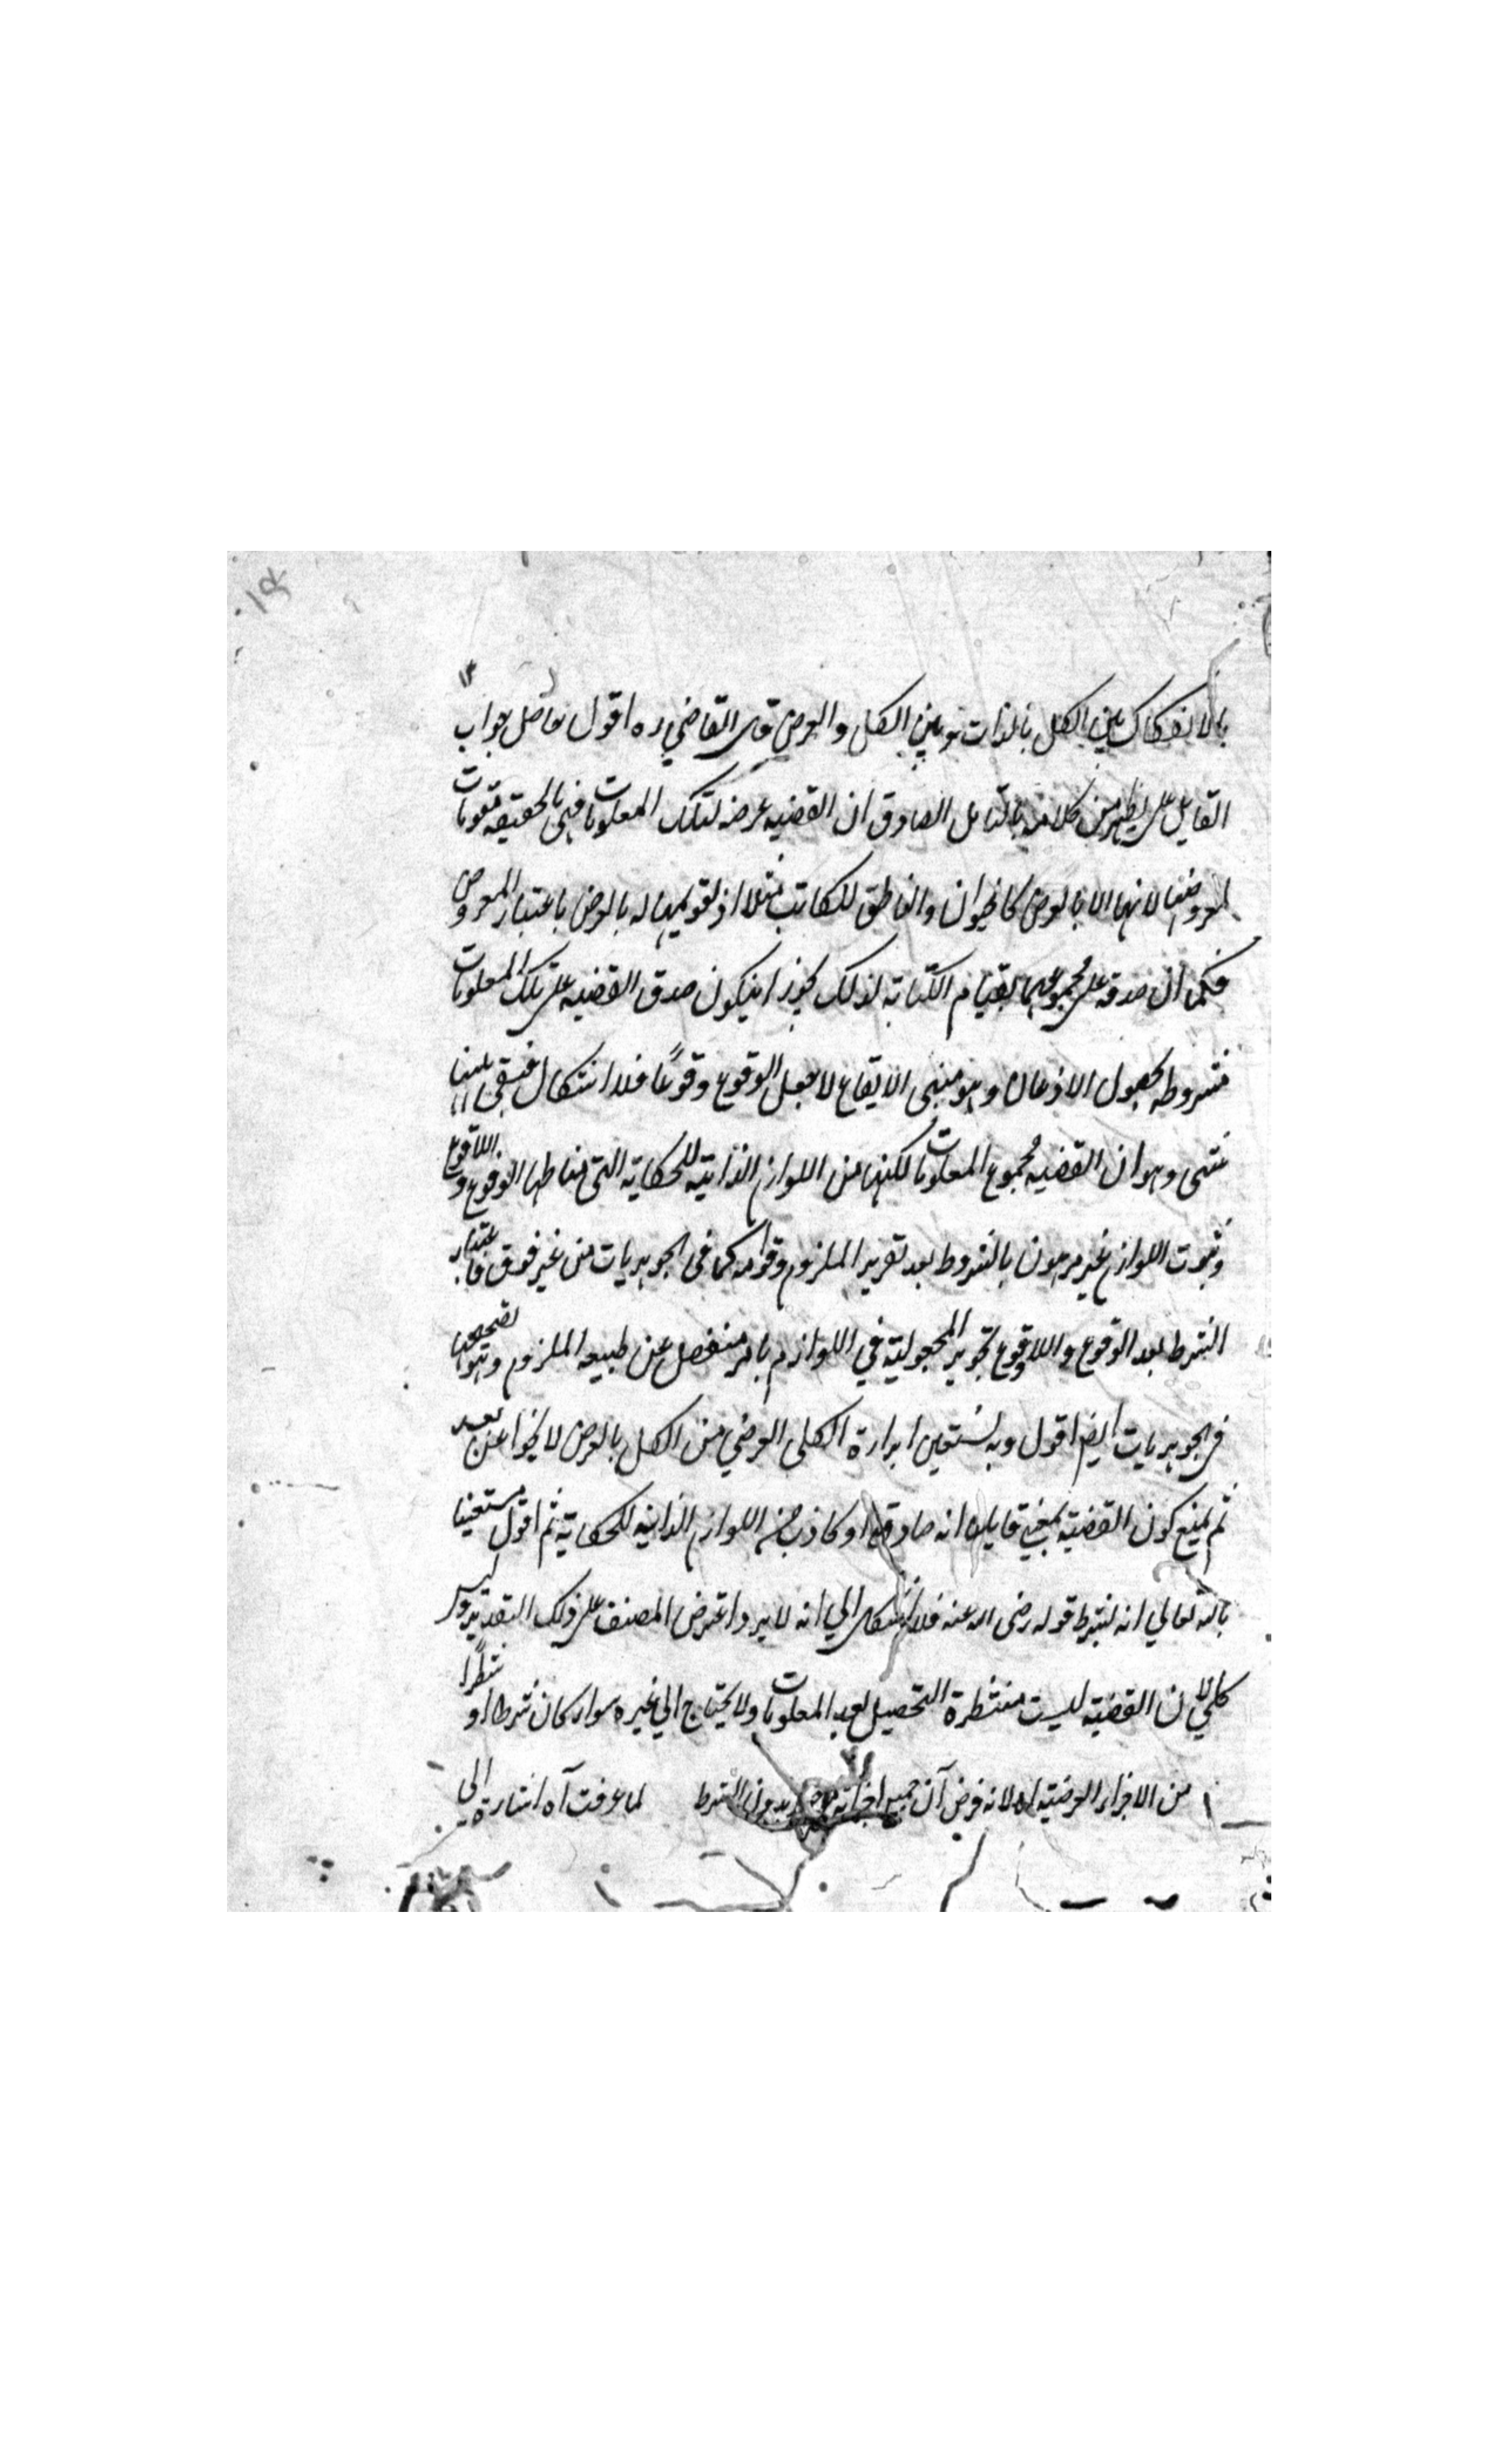 بالانفكاك بين الكل بالذات وبين الكل والعرض قال القاضي ره اقول حاصل جواب
القايل على يظهر من كلامه بالتامل الصادق ان القضيه عرضه لتلك المعلومات فهي بالحقيقه مقومات
لمعروضها لا لها الا بالعرض كالحيوان والناطق للكاتب مثلا اذ تقويمهما له بالعرض باعتبار المعروض
فكما ان صدقه على مجموعهما بقيام الكتابة لذلك يجوز ان يكون صدق القضيه على تلك المعلومات
مشروطه بحصول الاذعان وهو معنى الايقاع لا بجعل الوقوع وقوعًا فلا اشكال فبقى ههنا
شى وهو ان القضيه مجموع المعلومات لكنها من اللوازم الذاتية للحكاية التي مناطها الوقوع واللاقوع
وثبوت اللوازم غير مرهون بالشروط بعد تقرير الملزوم وقوامه كما فى الجوهريات من غير فرق فاعتبار
الشرط بعد الوقوع واللاوقوع تجويز المجعولية في اللوازم بامر منفصل عن طبيعه الملزوم
فى الجوهريات ايضا اقول وبه نستعين ارادة الكلى العرضي من الكل بالعرض لا يخوا عن بعد
ثم يمنع كون القضية بمعنى قايله انه صادق او كاذب من اللوازم الذاتية للحكاية ثم اقول مستعينا
بالله تعالي انه لشرط قوله رضى الله عنه فلا اشكال الي انه لا يرد اعتراض المصنف على ذلك التقدير وليس
كذلك لان القضية ليست منتظرة التحصيل بعد المعلومات ولا يحتاج الي غيره سواء كان شرطا او شطرًا
من الاجزاء العرضية اه لانه فرض آن جميع اجزائه بدون الشرط لما عرفت آه اشارة الى